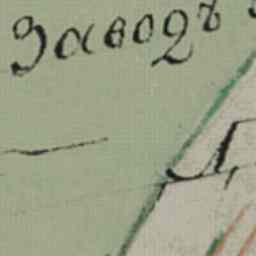 Заводъ
Д